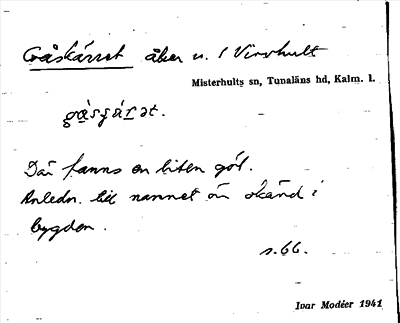 Gåskärret åker u. / Virvhult
Misterhults sn, Tunaläns hd, Kalm. l.
gåsʒäret.
Där fanns en liten göl.
Anledn. till namnet är okänd i
bygden.
s. 66.
Ivar Modéer 1941